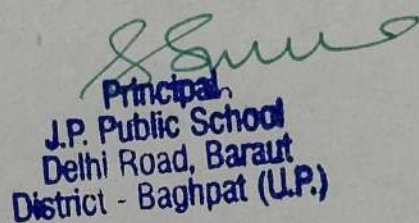 Principal,
J.P. Public School
Delhi Road, Baraut
District - Baghpat (U.P.)